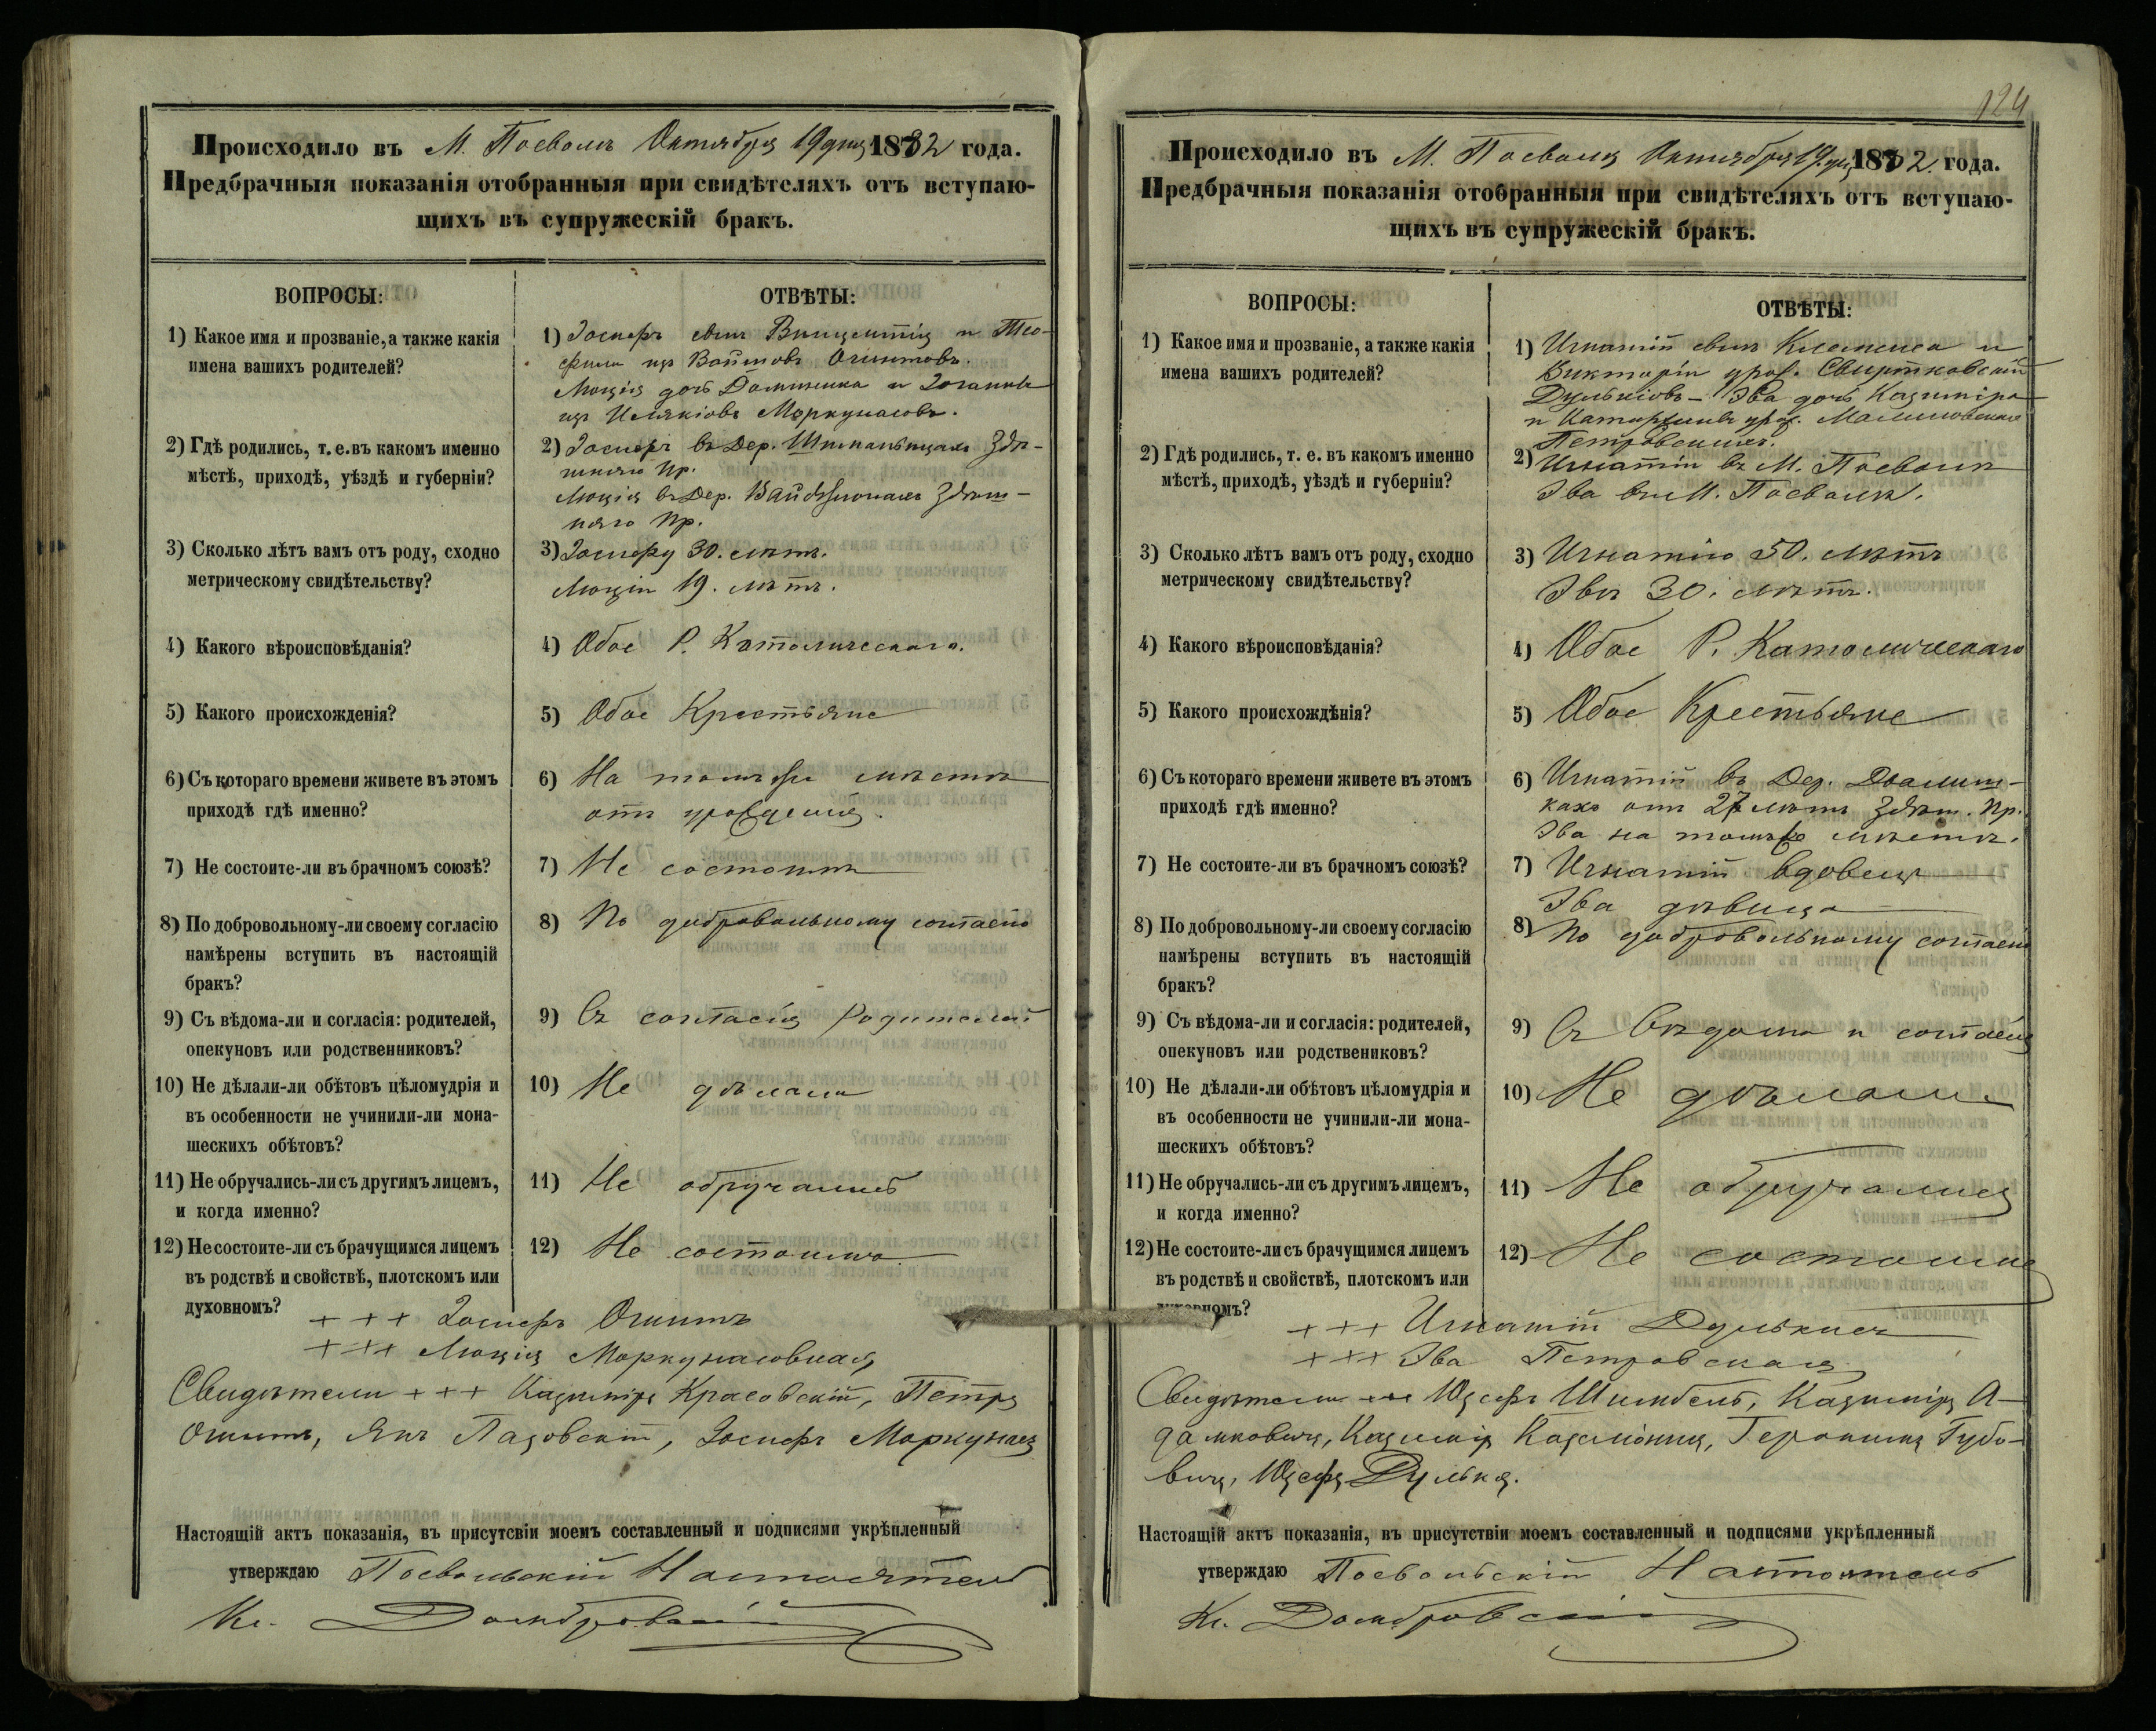 Происходило въ М. Посволь Октября 19 дня 1882 года.
Предбрачныя показанія отобранныя при свидѣтеляхъ отъ вступаю-
щихъ въ супружескій бракъ.
ВОПРОСЫ:
ОТВѢТЫ:
1) Какое имя и прозваніе, а также какія
имена вашихъ родителей?
1) Іосифъ сынъ Винцентія и Тео-
фили изъ
Люція дочь Доминика и Іоганны
изъ Маркунасовъ.
2) Гдѣ родились, т. е. въ какомъ именно
мѣстѣ, приходѣ, уѣздѣ и губерніи?
2) Іосифъ въ Дер. Здѣ-
шняго Пр.
Люція въ Дер. Здѣш-
няго Пр.
3) Сколько лѣтъ вамъ отъ роду, сходно
метрическому свидѣтельству?
3) Іосифу 30. лѣтъ.
Люціи 19. лѣтъ.
4) Какого вѣроисповѣданія?
4) Обое Р. Католическаго.
5) Какого происхожденія?
5) Обое Крестьяне
6) Съ котораго времени живете въ этомъ
приходѣ гдѣ именно?
6) На томъ же мѣстѣ
отъ рожденія.
7) Не состоите-ли въ брачномъ союзѣ?
7) Не состоитъ
8) По добровольному-ли своему согласію
намѣрены вступить въ настоящій
бракъ?
8) По добровольному согласію
9) Съ вѣдома-ли и согласія: родителей,
опекуновъ или родственниковъ?
9) Съ согласія Родителей
10) Не дѣлали-ли обѣтовъ цѣломудрія и
въ особенности не учинили-ли мона-
шескихъ обѣтовъ?
10) Не дѣлали
11) Не обручались-ли съ другимъ лицемъ,
и когда именно?
11) Не обручались
12) Не состоите-ли съ брачущимся лицемъ
въ родствѣ и свойствѣ, плотскомъ или
духовномъ?
12) Не состоимъ
+ + + Іосифъ
+ + + Люція Маркунасовная,
Свидѣтели + + + Казиміръ Красовскій, Петръ
Янъ Лазовскій, Іосифъ Маркунасъ
Настоящій актъ показанія, въ присутсвіи моемъ составленный и подписями укрѣпленный
утверждаю Посвольскій Настоятель
Кс. Домбровскій
124
Происходило въ М. Посволя Октября 19. дня 1882. года.
Предбрачныя показанія отобранныя при свидѣтеляхъ отъ вступаю-
щихъ въ супружескій бракъ.
ВОПРОСЫ:
ОТВѢТЫ:
1) Какое имя и прозваніе, а также какія
имена вашихъ родителей?
1) Игнатій сынъ Клеменса и
Викторіи урож.
Эва дочь Казиміра
и Катаржины урож. Малиновская
Петровскихъ.
2) Гдѣ родились, т. е. въ какомъ именно
мѣстѣ, приходѣ, уѣздѣ и губерніи?
2) Игнатій въ М. Посволи
Эва въ М. Посволи.
3) Сколько лѣтъ вамъ отъ роду, сходно
метрическому свидѣтельству?
3) Игнатію 50. лѣтъ
Эвѣ 30. лѣтъ.
4) Какого вѣроисповѣданія?
4) Обое Р. Католическаго
5) Какого происхождѣнія?
5) Обое Крестьяне
6) Съ котораго времени живете въ этомъ
приходѣ гдѣ именно?
6) Игнатій въ Дер.
отъ 27 лѣтъ Здѣш. Пр.
Эва на томъ же мѣстѣ.
7) Не состоите-ли въ брачномъ союзѣ?
7) Игнатій вдовецъ
Эва дѣвица
8) По добровольному-ли своему согласію
намѣрены вступить въ настоящій
бракъ?
8) По добровольному согласію
9) Съ вѣдома-ли и согласія: родителей,
опекуновъ или родствениковъ?
9) Съ вѣдома и согласія
10) Не дѣлали-ли обѣтовъ цѣломудрія и
въ особенности не учинили-ли мона-
шескихъ обѣтовъ?
10) Не дѣлали
11) Не обручались-ли съ другимъ лицемъ,
и когда именно?
11) Не обручались
12) Не состоите-ли съ брачущимся лицемъ
въ родствѣ и свойствѣ, плотскомъ или
духовномъ?
12) Не состоимъ
+ + + Игнатій Дулькисъ
+ + + Эва Петровская
Свидѣтели +++ Юзефъ Казиміръ А-
дамковичъ, Казиміръ Геронимъ Губо-
вичъ, Юзефъ Дулька.
Настоящій актъ показанія, въ присутствіи моемъ составленный и подписями укрѣпленный
утверждаю Посвольскій Настоятель
Кс. Домбровскій